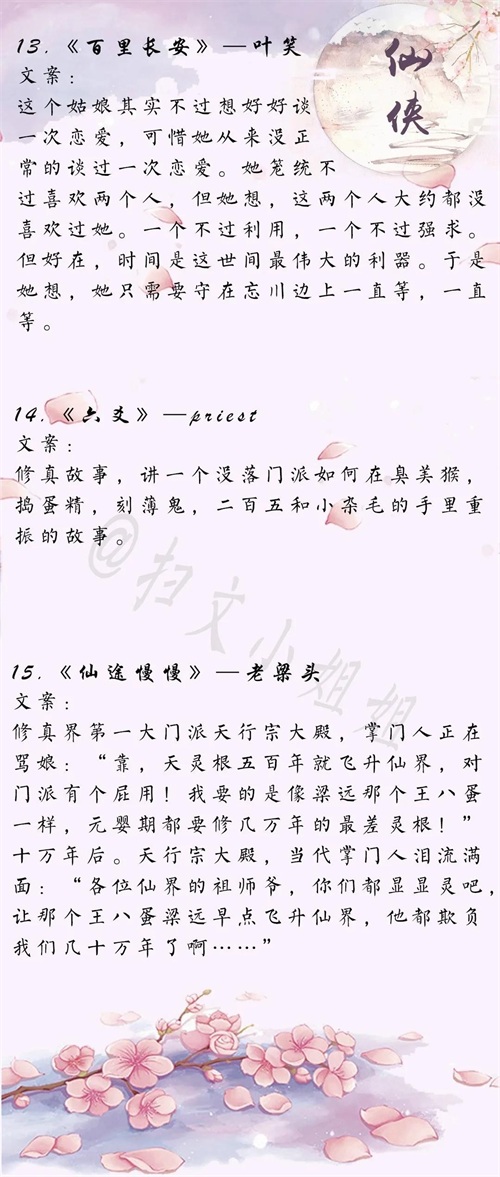 仙侠
13.《百里长安》—叶笑
文案：
这个姑娘其实不过想好好谈
一次恋爱，可惜她从来没正
常的谈过一次恋爱。她笼统不
过喜欢两个人，但她想，这两个人大约都没
喜欢过她。一个不过利用，一个不过强求。
但好在，时间是这世间最伟大的利器。于是
她想，她只需要守在忘川边上一直等，一直
等。
14.《六爻》—priest
文案：
修真故事，讲一个没落门派如何在臭美猴，
捣蛋精，刻薄鬼，二百五和小杂毛的手里重
振的故事。
@扫文小姐姐
15.《仙途慢慢》—老梁头
文案：
修真界第一大门派天行宗大殿，掌门人正在
骂娘：“靠，天灵根五百年就飞升仙界，对
门派有个屁用！我要的是像梁远那个王八蛋
一样，元婴期都要修几万年的最差灵根！”
十万年后。天行宗大殿，当代掌门人泪流满
面：“各位仙界的祖师爷，你们都显显灵吧，
让那个王八蛋梁远早点飞升仙界，他都欺负
我们几十万年了啊……”